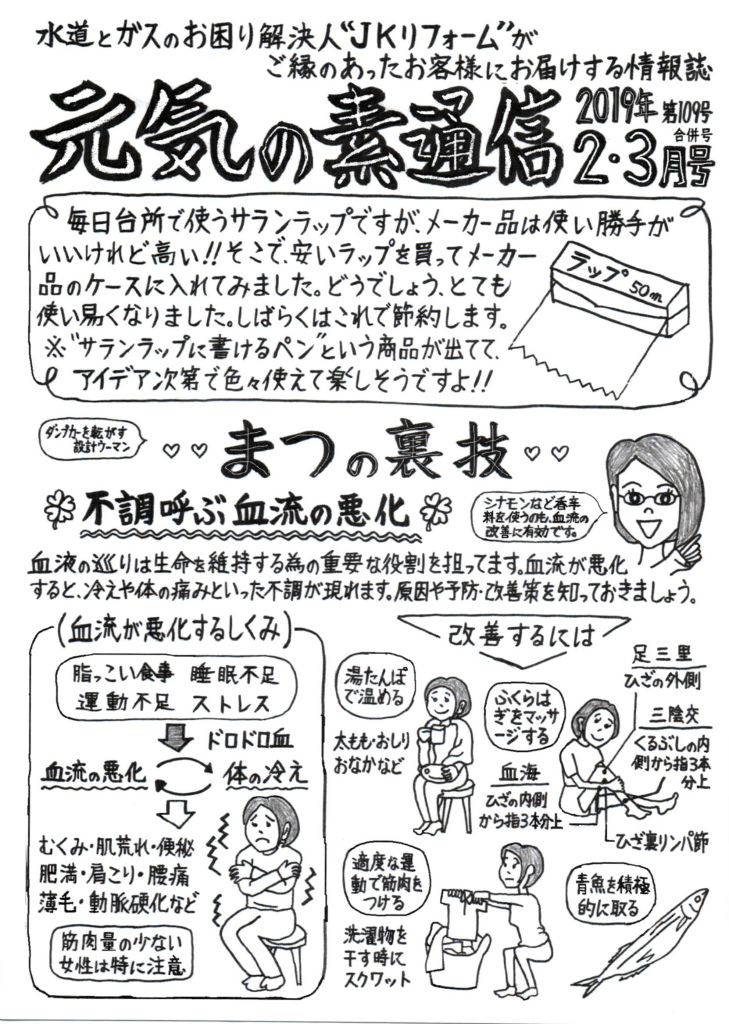 水道とガスのお困り解決人“JKリフォーム”が
ご縁のあったお客様にお届けする情報誌
元気の素通信
2019年 第109号
合併号
2・3月号
毎日台所で使うサランラップですが、メーカー品は使い勝手が
いいけれど高い!!そこで、安いラップを買ってメーカー
品のケースに入れてみました。どうでしょう、とても
使い易くなりました。しばらくはこれで節約します。
※“サランラップに書けるペン”という商品が出てて、
アイデア次第で色々使えて楽しそうですよ!!
ラップ 50m
ダンプカーを転がす
設計ウーマン
♡♡ まつの裏技 ♡♡
不調呼ぶ血流の悪化
シナモンなど香辛
料を使うのも、血流の
改善に有効です。
血液の巡りは生命を維持する為の重要な役割を担ってます。血流が悪化
すると、冷えや体の痛みといった不調が現れます。原因や予防・改善策を知っておきましょう。
(血流が悪化するしくみ)
脂っこい食事 睡眠不足
運動不足 ストレス
ドロドロ血
血流の悪化 体の冷え
むくみ・肌荒れ・便秘
肥満・肩こり・腰痛
薄毛・動脈硬化など
筋肉量の少ない
女性は特に注意
改善するには
湯たんぽ
で温める
太もも・おしり
おなかなど
ふくらは
ぎをマッサ
ージする
足三里
ひざの外側
三陰交
くるぶしの内
側から指3本
分上
血海
ひざの内側
から指3本分上
ひざ裏リンパ節
適度な運
動で筋肉を
つける
洗濯物を
干す時に
スクワット
青魚を積極
的に取る